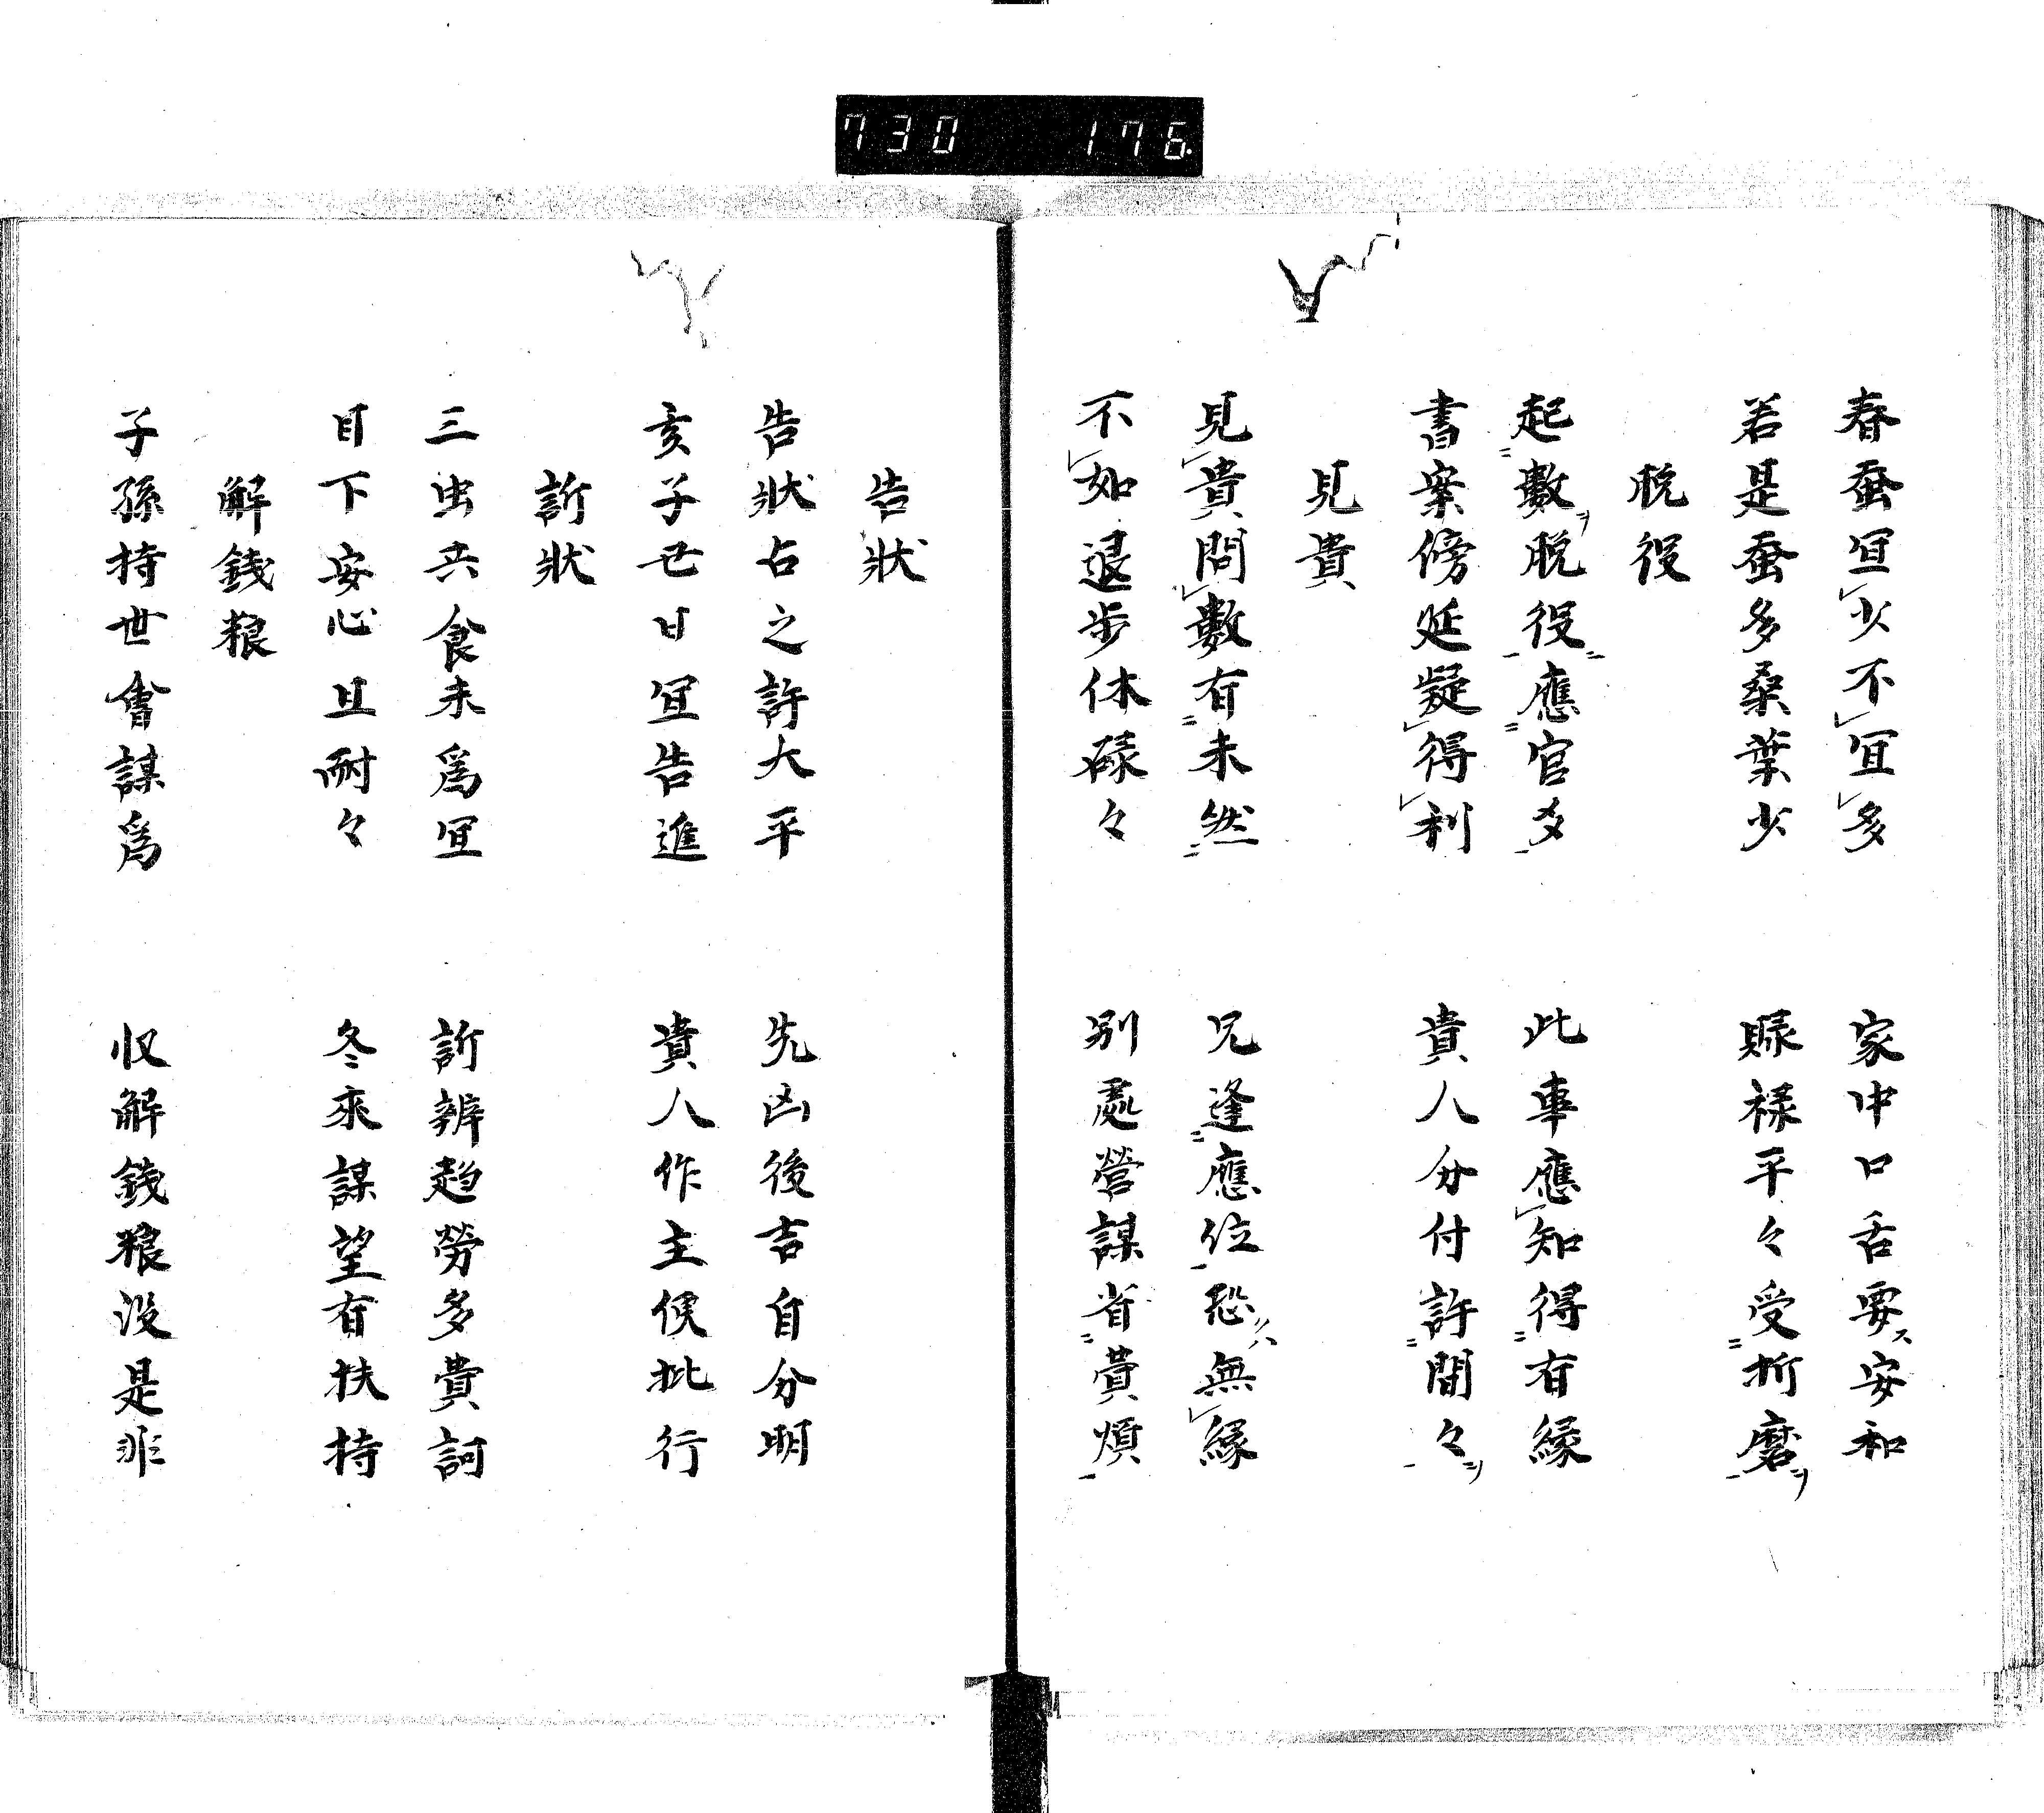 730 176
春蚕宜少不宜多 家中口舌要安和
若是蚕多桑葉少 賑禄平々受折磨
脱役
起數脱役應官多 此事應知得有縁
書案傍延凝得利 貴人分付許間々
見貴
見貴問數有未然 兄逢應位恐無縁
不如退步休碌々 別處營謀省費煩
告狀
告狀占之許大平 先凶後吉自分明
亥子丑日宜告進 貴人作主候批行
訴狀
三虫共食未為宜 訴辨趋勞多貴訶
目下安心且耐々 冬來謀望有扶持
解錢粮
子孫持世會謀為 收解錢粮没是非